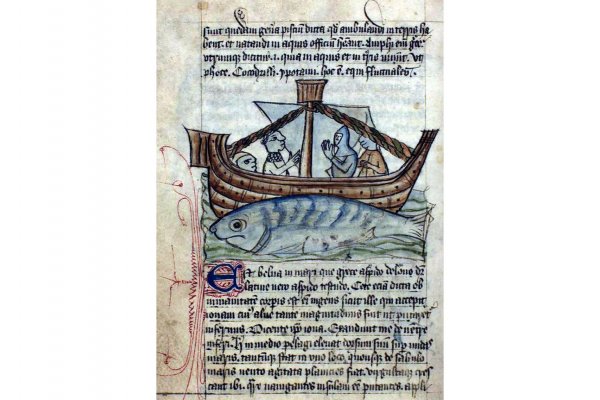 sunt quedam gen̄a pisciū dicta qd̄ ambulandi in terris ha
bent. et natandi in aquis officiū hēant. Amphi em̄
dicitur .i. quia in aquis et in t̄ris uiuūt. vt
phoce. Cocodrilli. ypotami. hoc ē. equi fluctuales.
Est belua in mari que grece aspido delone dr̄
latine vero aspido testudo. Cete eciā dicta ob
immanitatem corpis est eī ingens sicut ille qui excepit
ionam cui᷒ aluᷤ tante magnitudinis fuit ut putaret
infernus. Dicente ip̄o iona. Exaudiuit me de uentre
inferi. h in medio pelagi eleuat dorsum suū sup undas
maris. tantūque stat in uno loco. quousque de sabulo
maris vento agitata planicies fiat. virgultaque cres
cant ibi. Qr̄e nauigantes insulam eē putantes. appli